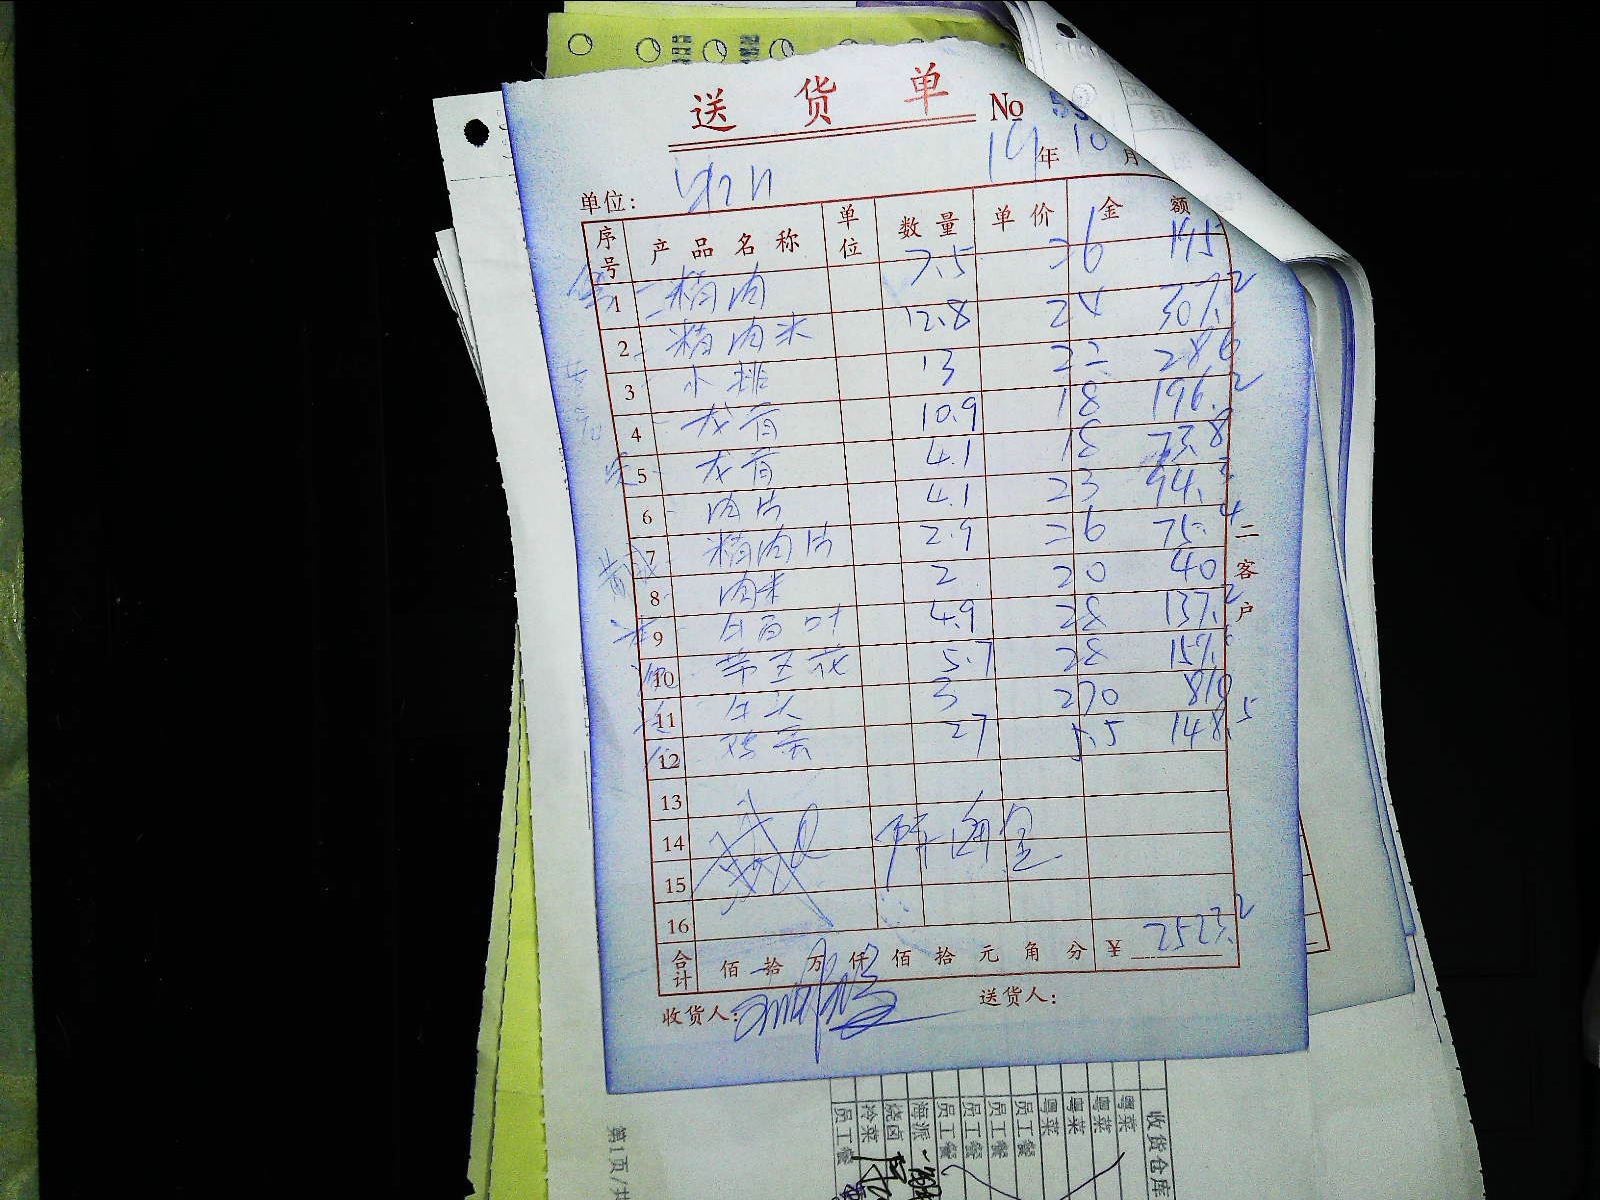 送货单 No
19年10月
单位:
序号 产品名称 单位 数量 单价 金额
1 精肉 7.5 26 195
2 精肉米 12.8 24 307.2
3 小排 13 22 286
4 龙骨 10.9 18 196.2
5 龙骨 4.1 18 73.8
6 肉片 4.1 23 94.3
7 精肉片 2.9 26 75.4
8 肉米 2 20 40
9 牛百叶 4.9 28 137.2
10 带五花 5.7 28 159.6
11 牛头 3 270 810
12 27 5.5 148.5
13
14
15
16
合计 佰拾万仟佰拾元角分 ¥ 2523.2
收货人: 送货人:
二客户
收货仓库
粤菜
粤菜
粤菜
粤菜
员工餐
员工餐
员工餐
员工餐
海派
烧卤
冷菜
员工餐
第1页/共